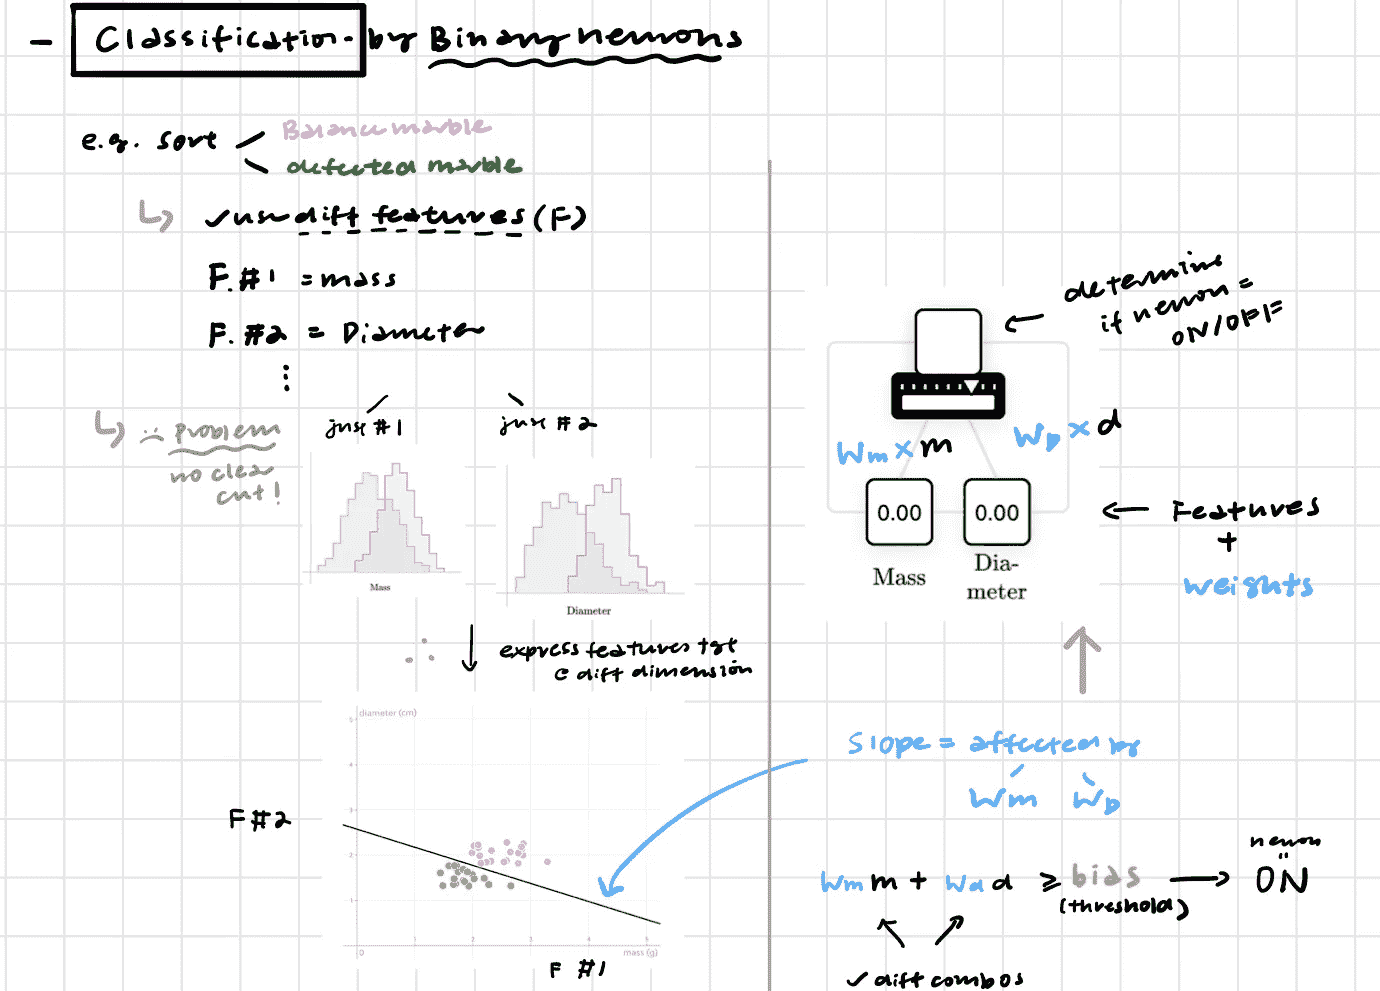 - Classification by Binary neurons
e.g. sort
Balance marble
defected marble
↳ ✓use diff features (F)
F.#1 = mass
F.#2 = Diameter
⋮
↳ :( Problem
no clear
cut!
just #1
just #2
Mass
Diameter
↓ express features tgt
@ diff dimension
diameter (cm)
5
4
3
2
1
0
1
2
3
4
5
mass (g)
F #2
F #1
determine
if neuron =
ON/OFF
Wm × m
WD × d
0.00
0.00
Mass
Dia-
meter
← Features
+
weights
Slope = affected by
Wm WD
neuron
Wm m + Wd d ≥ bias → ON
(threshold)
✓ diff combos